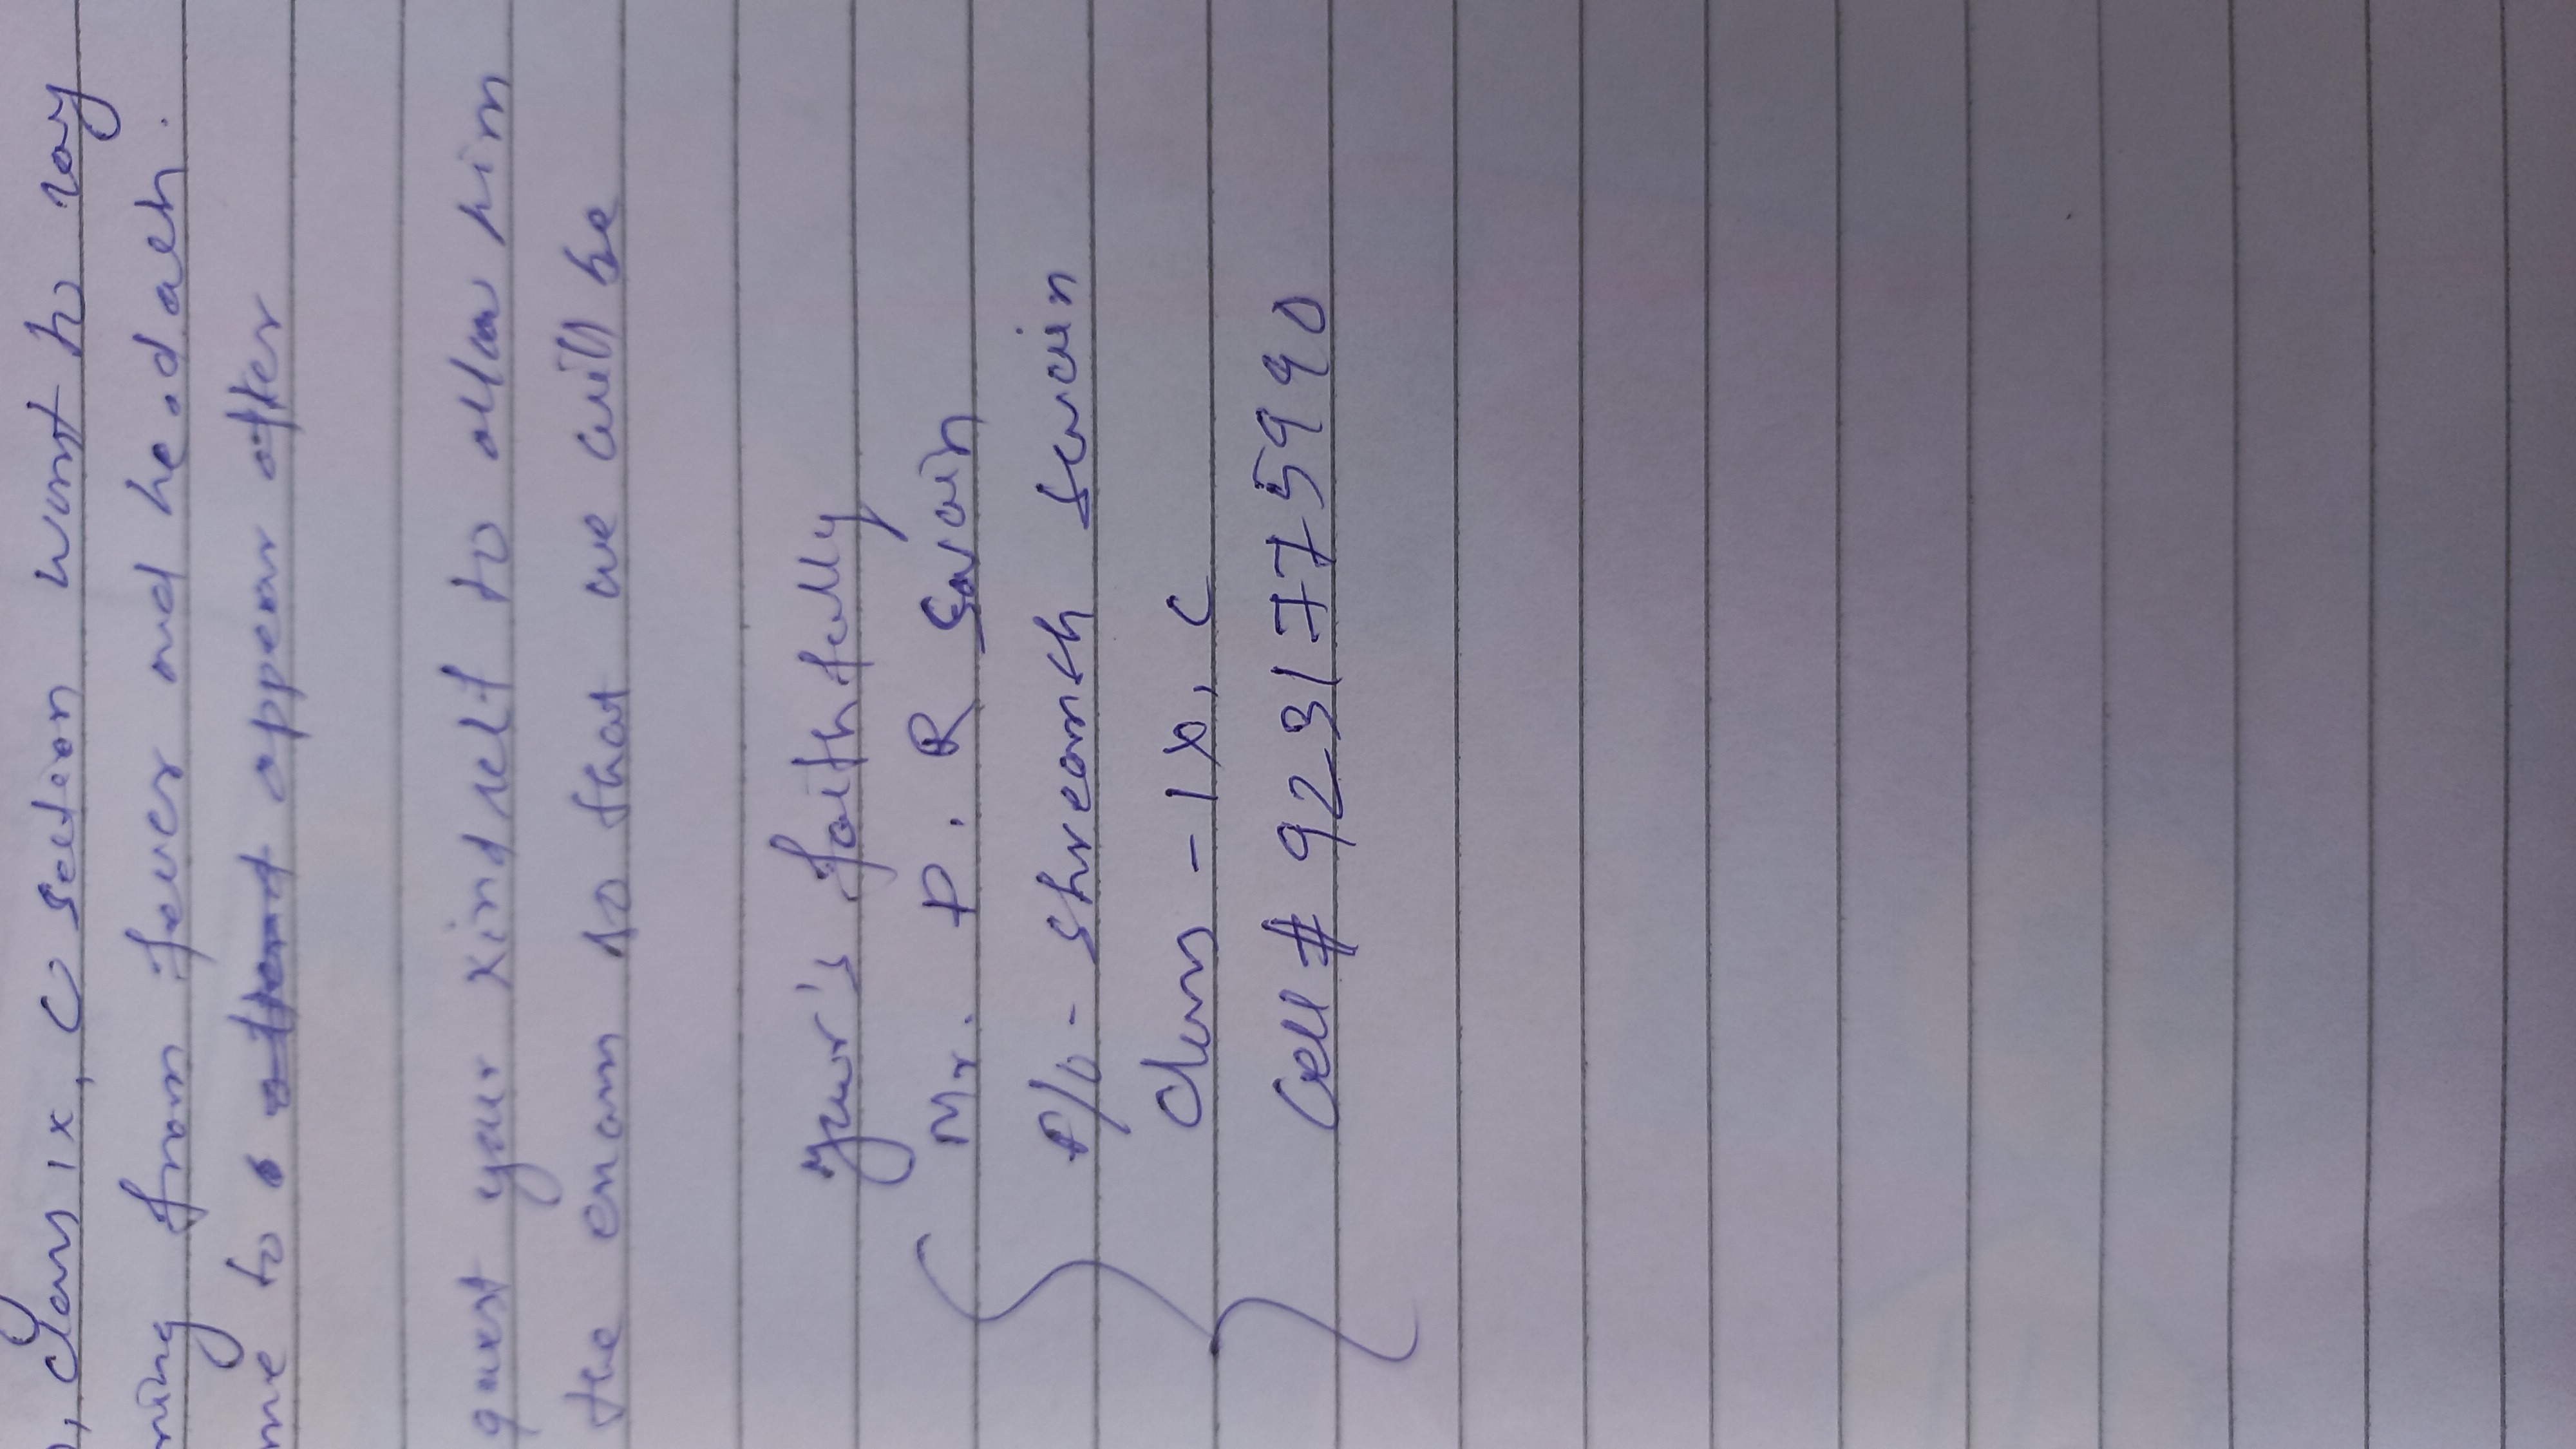 , Class IX, C section want to say
ning from fever and headach.
me to appear after
quest your kind self to allow him
the exam so that we will be
Your's faithfully
Mr. P. R Swain
F/o - Shreeansh Swain
Class - IX, C
Cell # 9231775990